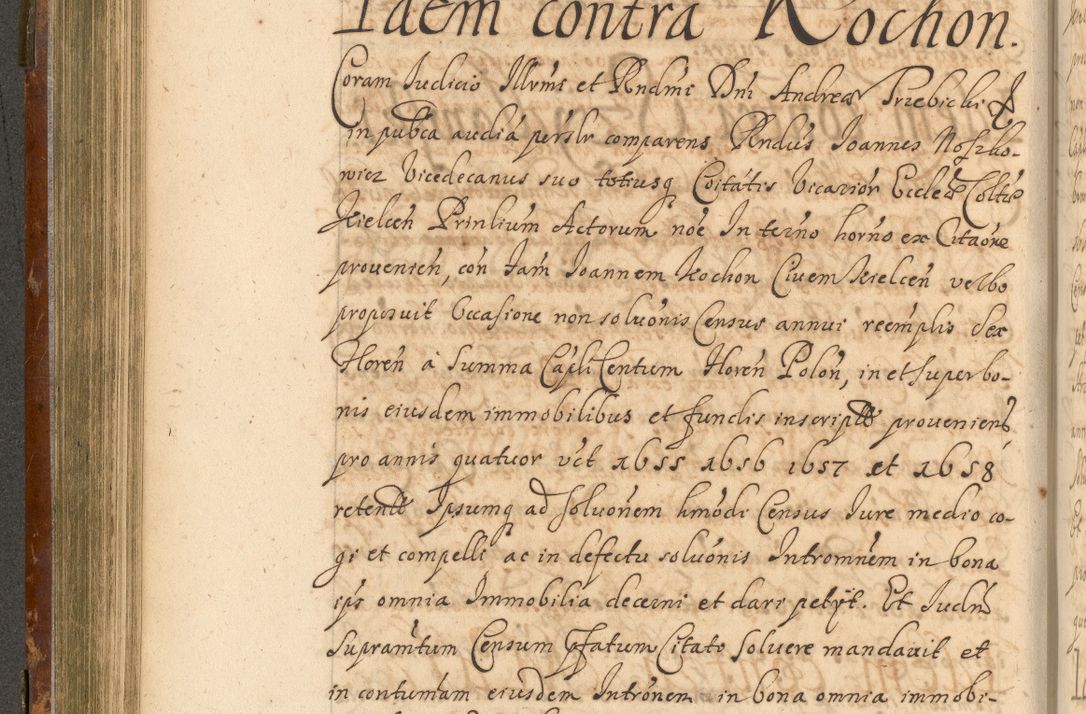 Idem contra Kochon.
Coram Iudicio Illrmi et Rndmi Dni Andreæ Trzebicki &
in pubca audia persłr comparens Rndus Ioannes Noszko-
wicz Vicedecanus suo totiusq Coitatis Vicariõr Eccleæ Coltæ
Kielceñ Prinlium Actorum noẽ In terño horño ex Citaõne
prouenieñ, coñ Fam Ioannem Kochon Ciuem Kielceñ verbo
proposuit Occasione non soluõnis Census annui reemplis sex
Floreñ à Summa Capli Centum Floreñ Poloñ, in et super bo-
nis eiusdem immobilibus et fundis inscriptæ prouenieñ
pro annis quatuor vẽt 1655 1656 1657 et 1658
retentæ Ipsumq ad soluõnem hmõdi Census Iure medio co-
gi et compelli ac in defectu soluõnis Intromñem in bona
ejus omnia Immobilia decerni et dari petyt. Et Iudm
supramtum Censum pfatum Citato soluere mandauit et
in contumtam eiusdem Intrõnem in bona omnia immobi-